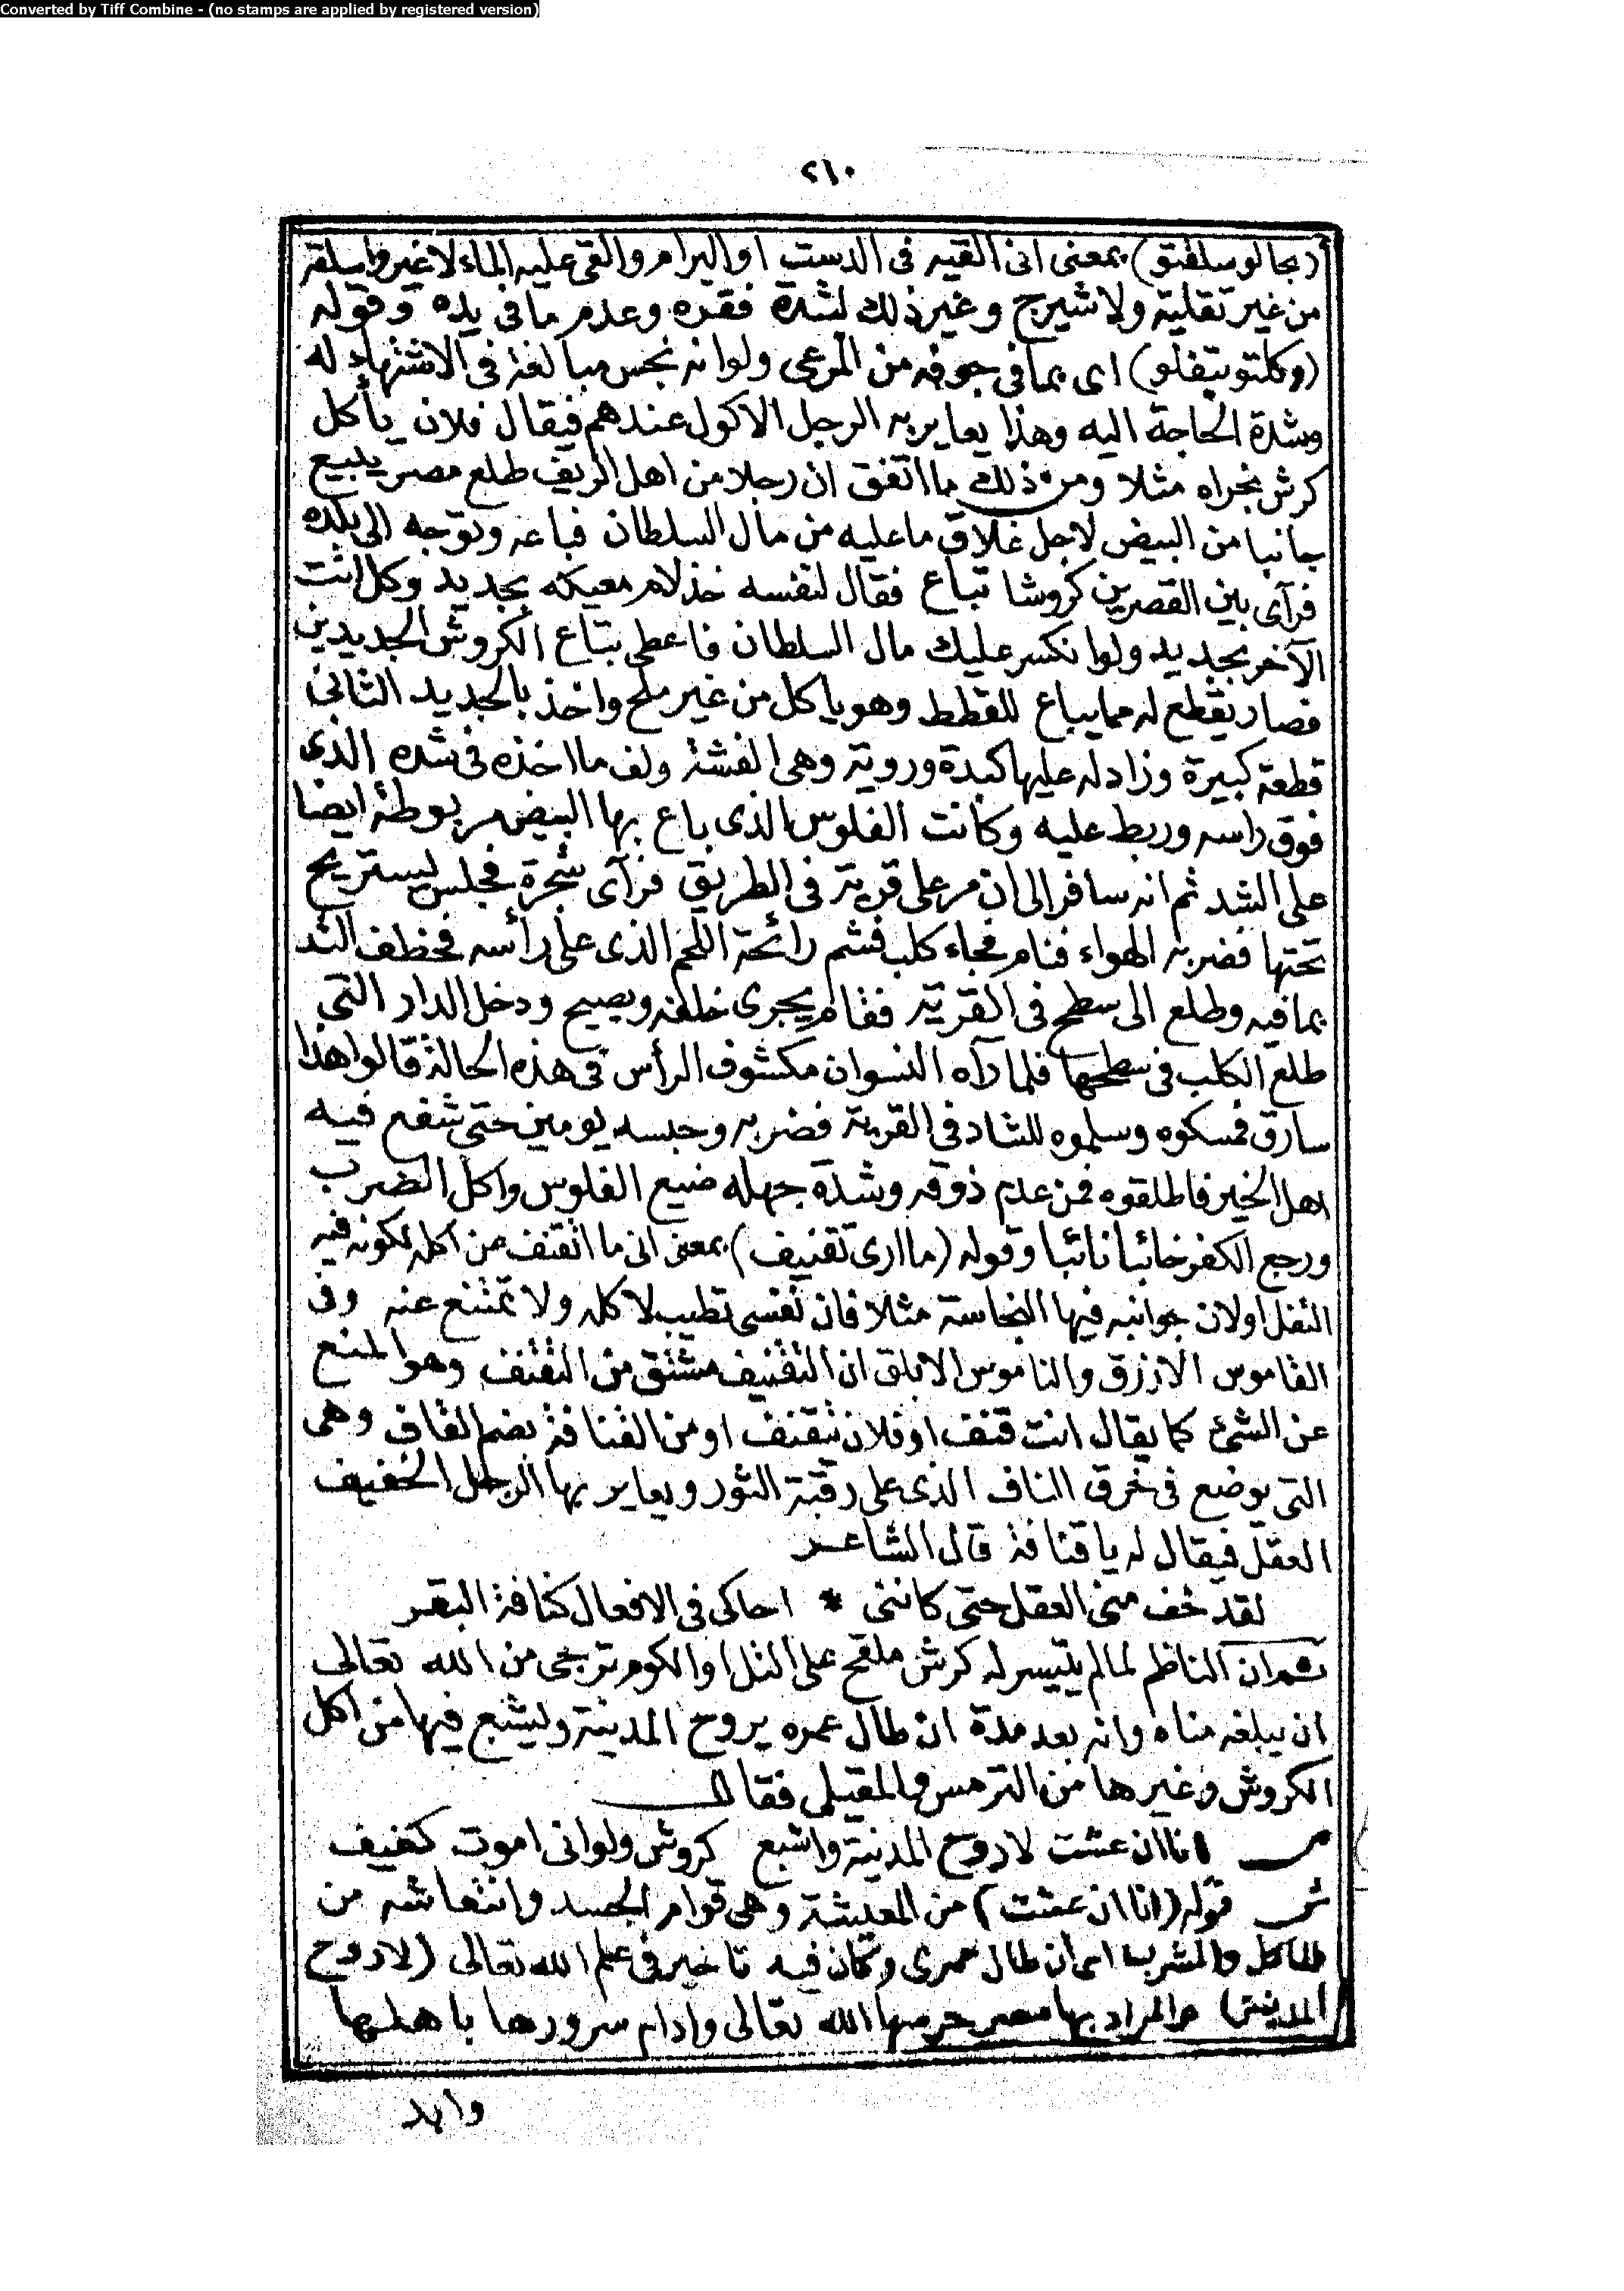 Converted by Tiff Combine - (no stamps are applied by registered version)
٢١٠
(بحالو سلقتو) بمعنى انى القيه فى الدست او البرام والقى عليه الماء لا غير واسلقه
من غير تقلية ولا شيرج وغير ذلك لشدة فقره وعدم ما فى يده وقوله
(وكلتو بتفلو) اى بما فى جوفه من المرعى ولو انه نجس مبالغة فى الاشتهاد له
وشدة الحاجة اليه وهذا يعاير به الرجل الاكول عندهم فيقال فلان يأكل
كرش بخراه مثلا ومن ذلك ما اتفق ان رجلا من اهل الريف طلع مصر يبيع
جانبا من البيض لاجل غلاق ما عليه من مال السلطان فباعه وتوجه الى بلده
فرآى بين القصرين كروشا تباع فقال لنفسه خذ لام معيكه بجديد وكل انت
الآخر بجديد ولو انكسر عليك مال السلطان فاعطى بتاع الكروش الجديدين
فصار يقطع له مما يباع للقطط وهو ياكل من غير ملح واخذ بالجديد الثانى
قطعة كبيرة وزاد له عليها كبدة وروية وهى الفشة ولف ما اخذه فى شده الذى
فوق راسه وربط عليه وكانت الفلوس الذى باع بها البيض مربوطة ايضا
على الشد ثم انه سافر الى ان مر على قرية فى الطريق فرآى شجرة فجلس ليستريح
تحتها فضربه الهواء فنام فجاء كلب فشم رائحة اللحم الذى على رأسه فخطف الشد
بما فيه وطلع الى سطح فى القرية فقام يجرى خلفه ويصيح ودخل الدار التى
طلع الكلب فى سطحها فلما رآه النسوان مكشوف الرأس فى هذه الحالة قالوا هذا
سارق فمسكوه وسلموه للشاد فى القرية فضربه وحبسه يومين حتى شفع فيه
اهل الخير فاطلقوه فمن عدم ذوقه وشدة جهله ضيع الفلوس واكل الضرب
ورجع الكفر خائبا نائبا وقوله (ما ارى تقنيف) بمعنى انى ما اتقنف من اكله لكونه فيه
التفل او لان جوانبه فيها النجاسة مثلا فان نفسى تطيب لاكله ولا تمتنع عنه وفى
القاموس الازرق والناموس الابلق ان التقنيف مشتق من التقنف وهو المنع
عن الشئ كما يقال انت قنف او فلان تيقنف او من القنافة بضم القاف وهى
التى توضع فى خرق الناف الذى على رقبة الثور ويعاير بها الرجل الخفيف
العقل فيقال له يا قنافة قال الشاعر
لقد خف منى العقل حتى كاننى * احاكى فى الافعال كنافة البقر
ثم ان الناظم لما لم يتيسر له كرش ملقح على التل او الكوم ترجى من الله تعالى
ان يبلغه مناه وانه بعد مدة ان طال عمره يروح المدينة وليشبع فيها من اكل
الكروش وغيرها من الترمس والمقيلى فقال
ص انا ان عشت لاروح المدينة واشبع كروش ولو انى اموت كفيف
ش قوله (انا ان عشت) من المعيشة وهى قوام الجسد وانتعاشه من
الماكل والمشرب اى ان طال عمرى وكان فيه تاخير فى علم الله تعالى (لاروح
المدينة) والمراد بها مصر حرسها الله تعالى وادام سرورها باهلها
وابد